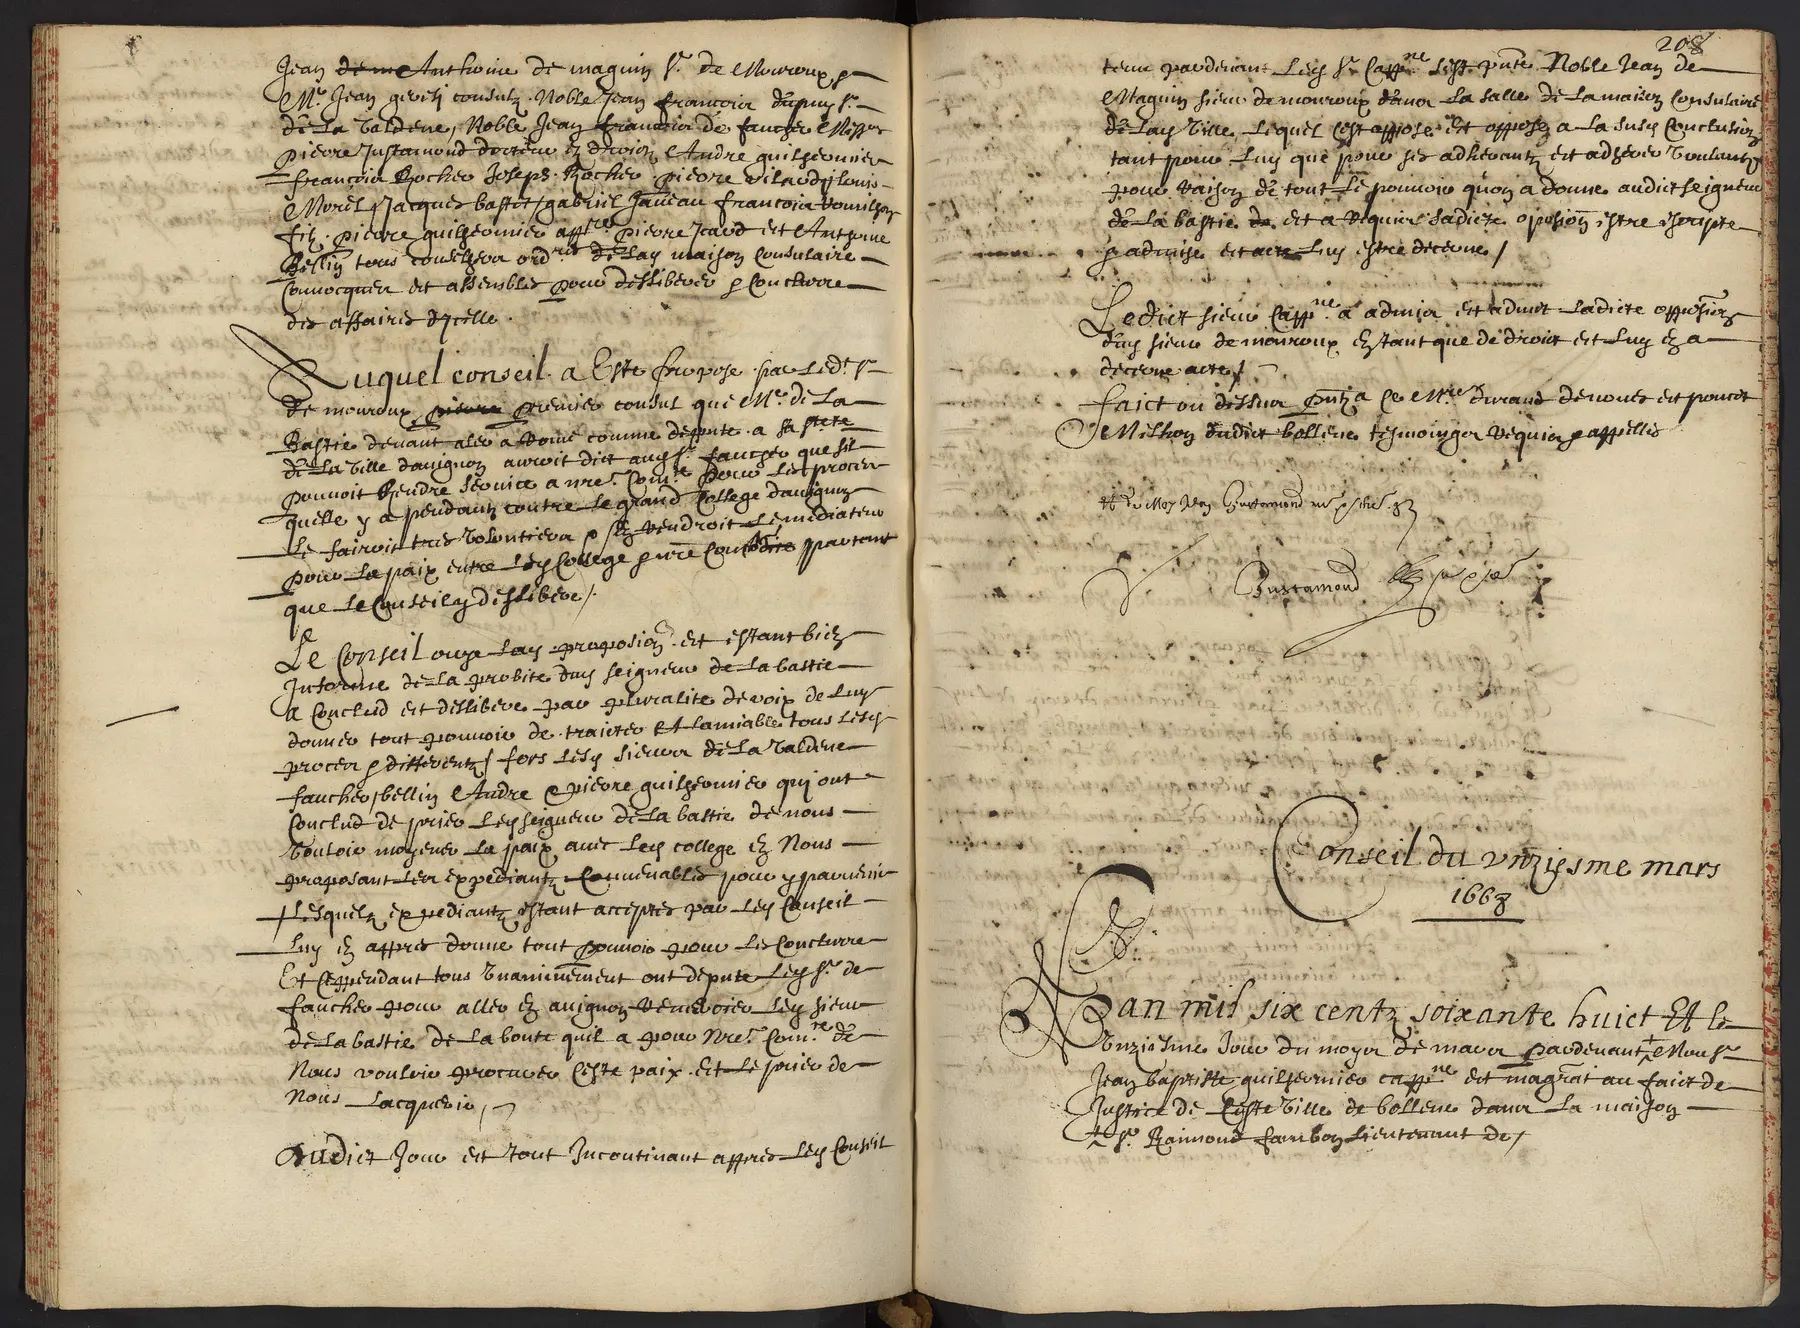 Jean Anthoine de maguin Sr. de Mouroux &
Mr. Jean consulz Noble Jean francois dupuy Sr.
de La Valdene, Noble Jean francois de faucher Missr
pierre Justamond docteur en droictz Andre guilhermier
francois Rocher Joseph Rocher pierre louis
Morel Jacques gabriel francois
filz pierre guilhermier appre. pierre Icard et Anthoine
Bellin tous conselhers ordres de Lad maison Consulaire
Convocques et assembles pour delliberer & Conclurre
des affaires d'Icelle.
Auquel conseil a Este propose par Led. Sr
de mouroux premier consul que Mr. de La
Bastie devant aler a Rome comme depputé a sa stete
de La Ville d'avignon auroit dict aud Sr. faucher que sil
pouvoit Rendre service a nre. Comte. pour Les proces
quelle y a pendantz contre Le grand College d'avignon
Le fairoit tres Volontiers & sen Rendroit Le mediateur
pour La paix entre Led College & nre partant
que Le Conseil y dellibere /.
Le Conseil ouye Lad proposion. et estant bien
Informe de La probite dud seigneur de La bastie
a Conclud et dellibere par pluralite de voix de Luy
donner tout pouvoir de traicter Et Lamiable tous Lesd
proces & differentz / fors Lesd sieurs de La Valdene
faucher / bellin Andre & pierre guilhermier qui ont
Conclud de prier Led seigneur de La bastie de nous
Vouloir moyener La paix avec Led college en Nous
proposant Les expediantz Convenables pour y parvenir
Lesquelz expediantz estant acceptes par Led Conseil
Luy en appres donne tout pouvoir pour Les Conclurre
Et Cependant tous Unanimement ont depute Led Sr. de
faucher pour aller en avignon Remercier Led sieur
de La bastie de La bonte quil a pour Nre. Comte. de
Nous vouloir procurer Ceste paix et Le prier de
Nous Lacquerir,
Audict Jour et tout Incontinant appres Led Conseil
208
tenu pardevant Led Sr Cappne. sest pnte Noble Jean de
Maguin sieur de mouroux dans La salle de La maison Consulaire
de Lad Ville Lequel sest oppose et oppose a La susd Conclusion
tant pour Luy que pour ses adherantz et adherer Voulantz
pour raison de tout Le pouvoir quon a donne audict seigneur
de La bastie et a Requis sadicte oposion estre escripte
& admise et acte Luy estre decerne /
Ledict sieur Cappne. a admis et admet Ladicte opposion
dud sieur de mouroux en tant que de droict et Luy en a
decerne acte /
faict ou dessus pntz a Ce Mre durand et poncet
Milhon dudict bollene tesmoingz Requis & appelles
Justamond
Justamond
Conseil du unziesme mars
1668
Lan mil six centz soixante huict Et le
Unziesme Jour du moys de mars pardevant + Monsr
Jean baptiste guilhermier cappne et magrat au faict de
Justice de Ceste Ville de bollene dans La maison
+ Sr. Raimond Lieutenant de /